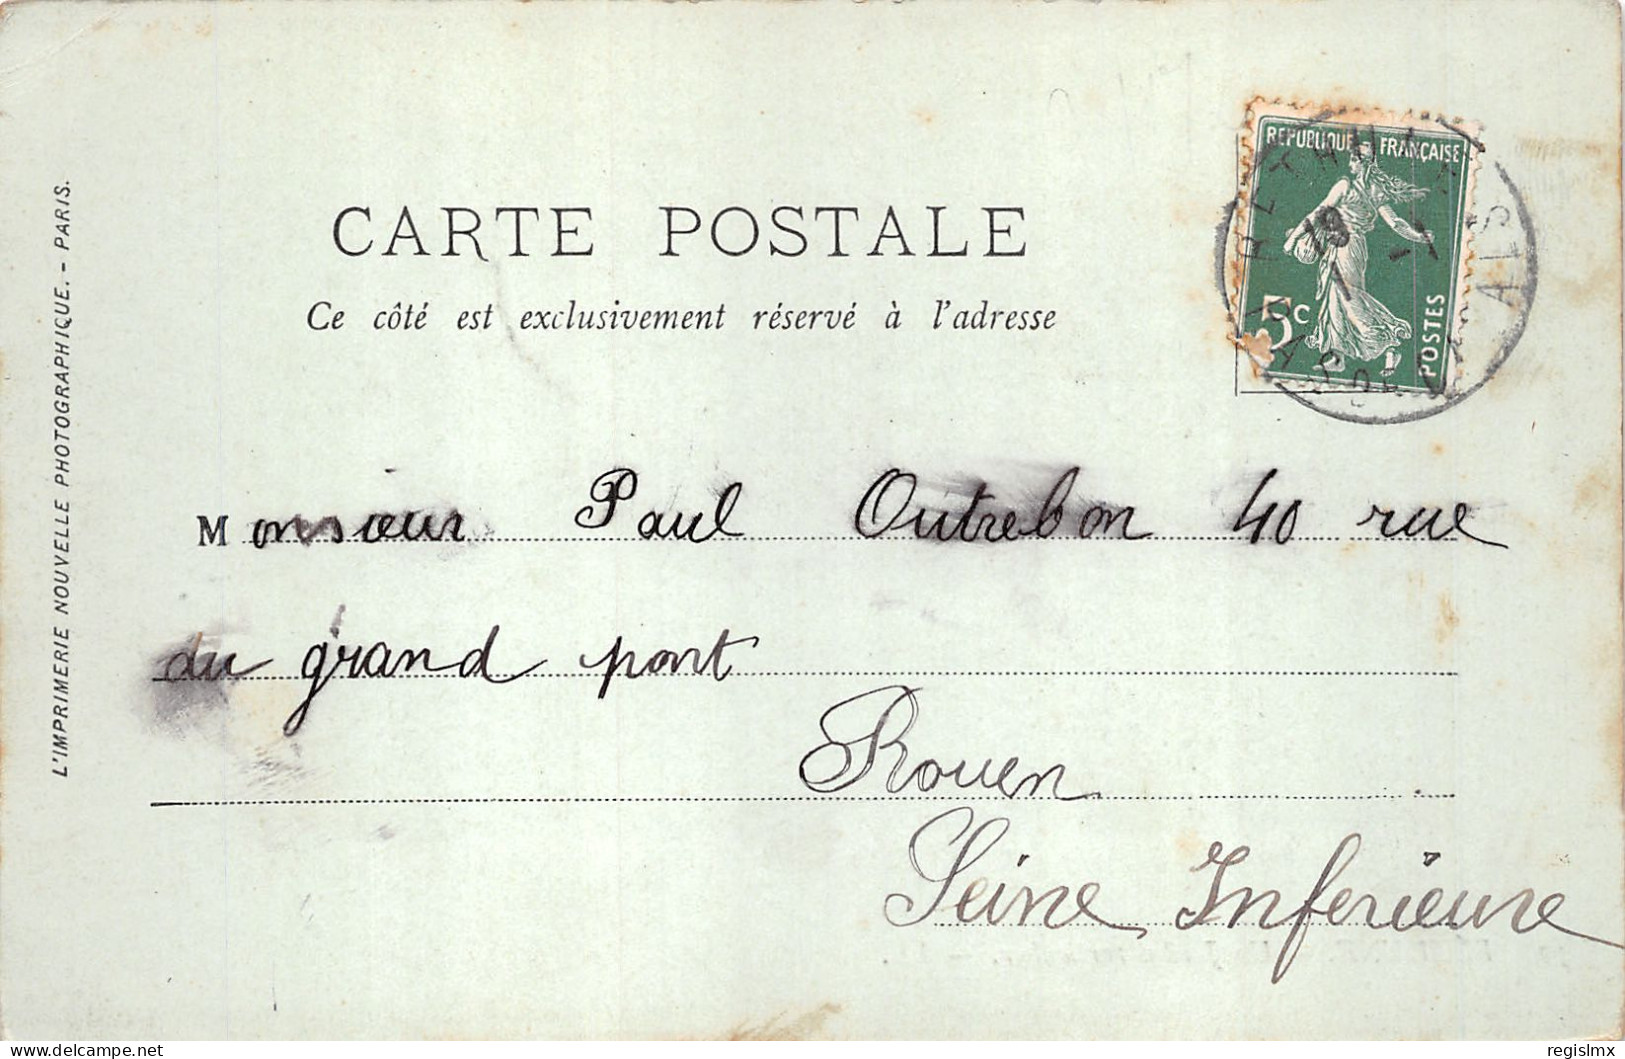 REPUBLIQUE FRANÇAISE
5c
POSTES
CARTE POSTALE
Ce côté est exclusivement réservé à l'adresse
Monsieur Paul Outrebon 40 rue
du grand pont
Rouen
Seine Inferieure
L'IMPRIMERIE NOUVELLE PHOTOGRAPHIQUE. - PARIS.
delcampe.net
regislmx